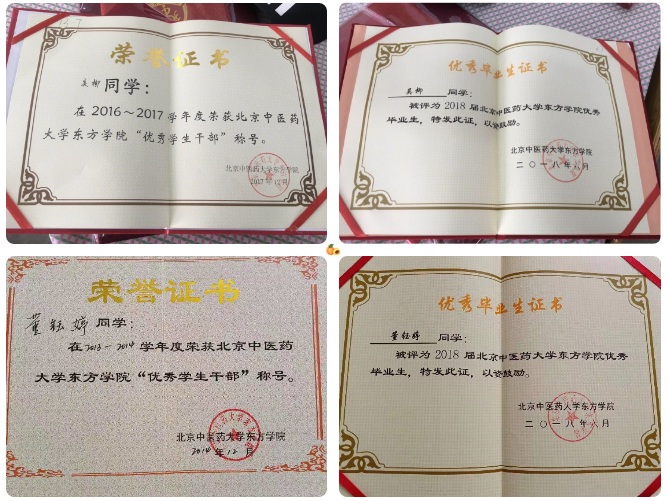 荣誉证书
吴柳同学：
在2016～2017学年度荣获北京中医药
大学东方学院“优秀学生干部”称号。
北京中医药大学东方学院
2017年12月
优秀毕业生证书
吴柳同学：
被评为2018届北京中医药大学东方学院优秀
毕业生，特发此证，以资鼓励。
北京中医药大学东方学院
二〇一八年六月
荣誉证书
董钰婷同学：
在2013-2014学年度荣获北京中医药
大学东方学院“优秀学生干部”称号。
北京中医药大学东方学院
2014年12月
优秀毕业生证书
董钰婷同学：
被评为2018届北京中医药大学东方学院优秀
毕业生，特发此证，以资鼓励。
北京中医药大学东方学院
二〇一八年六月